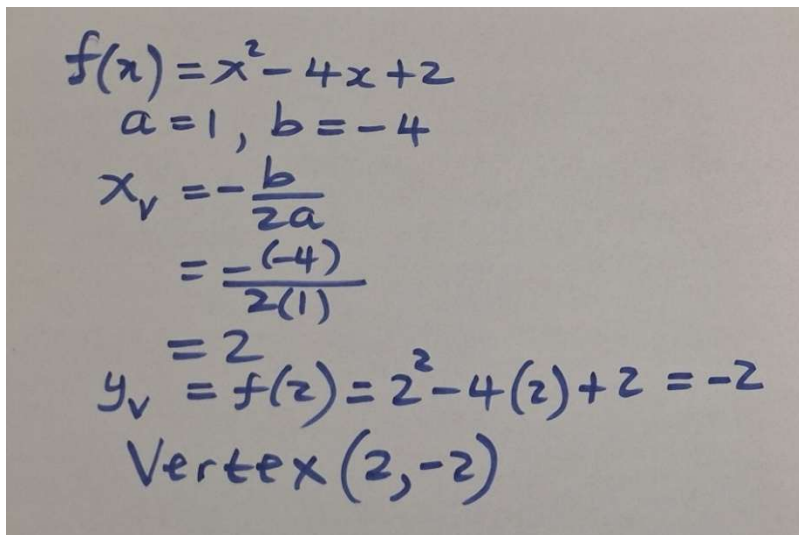 f(x) = x² - 4x + 2
a = 1, b = -4
x_v = - b/2a
= -(-4)/2(1)
= 2
y_v = f(2) = 2² - 4(2) + 2 = -2
Vertex (2, -2)